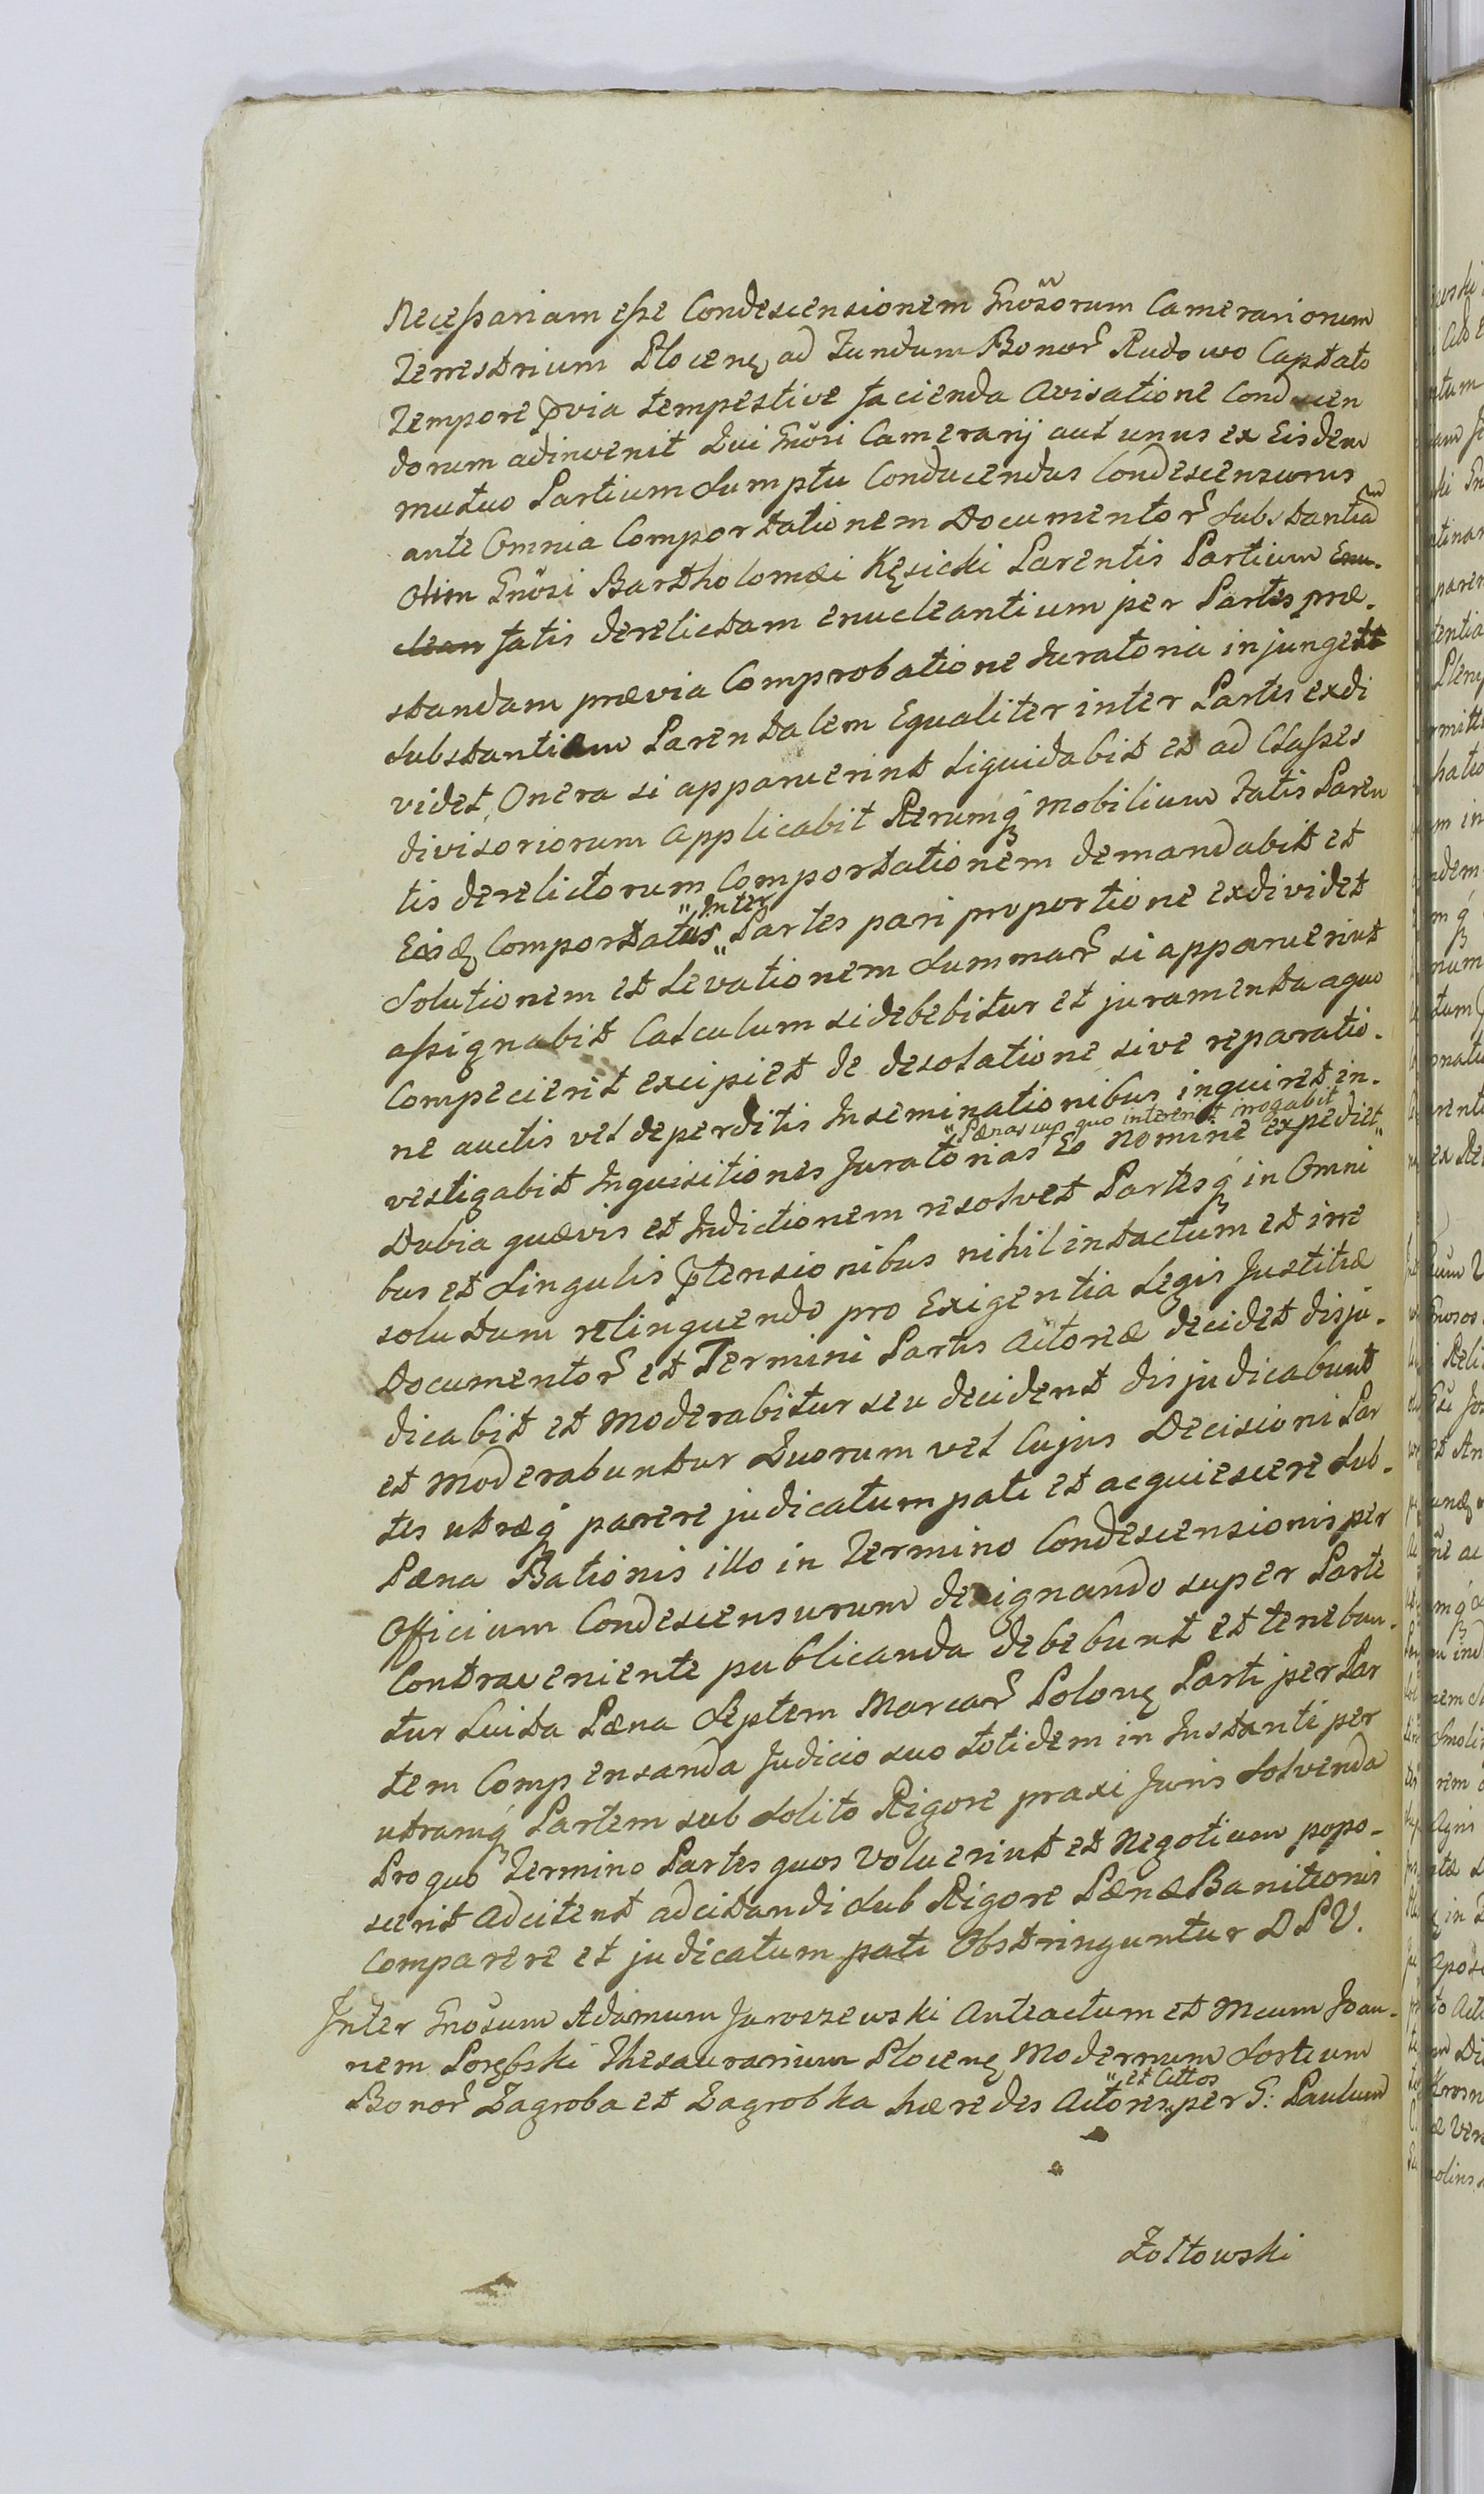 Necessariam esse Condescensionem Gnosorum Camerariorum
Terrestrium Plocen ad Fundum Bonor Rudowo Captato
Tempore pvia tempestive facienda Avisatione Conducen
dorum adinvenit Qui Gnosi Camerarij aut unus ex Eisdem
mutuo Partium Sumptu Conducendus Condescensurus
ante Omnia Comportationem Documentor Substantiam
Olim Gnosi Bartholomæi Kęsicki Parentis Partium Enu-
clean fatis derelictam enucleantium per Partes præ-
standam prævia Comprobatione Juratoria injunget
Substantiam Parentalem Equaliter inter Partes exdi
videt, Onera si apparuerint liquidabit et ad Classes
divisoriorum applicabit Rerumq Mobilium Fatis Paren
tis derelictorum Comportationem demandabit et
Easq Comportatas "Inter" Partes pari proportione exdividet
Solutionem et Levationem Summar si apparuerint
assignabit Calculum si debebitur et juramenta a quo
Compecierit excipiet de desolatione sive reparatio-
ne auctis vel deperditis Inseminationibus inquiret in-
"Pænas cui quo intererit irrogabit
vestigabit Inquisitiones Juratorias Eo Nomine expediet"
Dubia quævis et Indictionem resolvet Partesq in Omni
bus et Singulis ptensionibus nihil intactum et irre
solutum relinquendo pro Exigentia Legis Justitiæ
Documentor et Termini Partis Actoreæ decidet disju-
dicabit et Moderabitur seu decident disjudicabunt
et Moderabuntur Quorum vel Cujus Decisioni Par
tes utræq parere judicatum pati et acquiescere Sub-
Pæna Bationis illo in Termino Condescensionis per
Officium Condescensurum designando super Parte
Contraveniente publicanda debebunt et tenebun-
tur Luita Pæna Septem Marcar Polon Parti per Par
tem Compensanda Judicio suo totidem in Instanti per
utramq Partem sub Solito Rigore praxi Juris Solvenda
Pro quo Termino Partes quos Voluerint et Negotium popo-
scerit Adcitent adcitandi Sub Rigore Pænæ Banitionis
Comparere et judicatum pati Obstringuntur DPV.
Inter Gnosum Adamum Jaroszewski Anteactum et Meum Joan-
nem Porębski Thesaurarium Plocen Modernum Sortium
Bonor Zagroba et Zagrobka hæredes Actores "et Cittos" per G: Paulum
Żołtowski